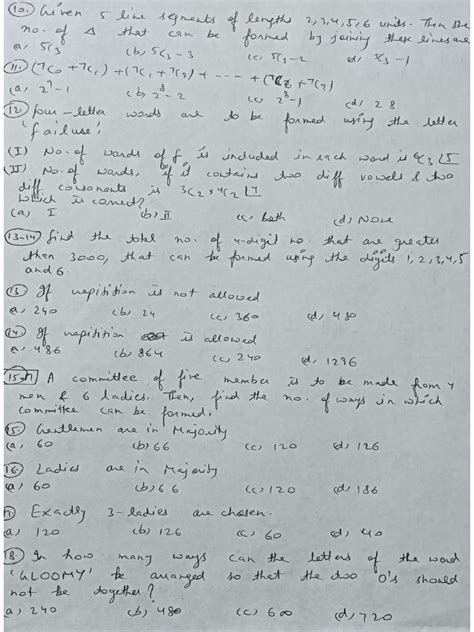 (10.) Given 5 line segments of lengths 2, 3, 4, 5, 6 units. Then the
no. of Δ that can be formed by joining these lines are
a, 5C3 (b, 5C3 - 3 (c, 5C3 - 2 d, 5C3 - 1
(11.) (7C0 + 7C1) + (7C1 + 7C2) + ---- + (7C6 + 7C7)
(a) 2^7 - 1 (b, 2^8 - 2 (c, 2^8 - 1 (d, 28
(12) Four-letter words are to be formed using the letter
'failuse',
(I) No. of words if f is included in each word is 6C3
(II) No. of words, if it contains two diff vowels & two
diff consonents is 3C2 x 4C2
Which is correct?
(a) I (b) II (c) both (d) None
(13-14) find the total no. of 4-digit no. that are greater
than 3000, that can be formed using the digits 1, 2, 3, 4, 5
and 6.
(13) If repitition is not allowed
a, 240 (b, 24 (c, 360 (d, 480
(14) If repitition is allowed
a, 486 (b, 864 (c, 240 (d, 1296
(15-17) A committee of five member is to be made from 4
men & 6 ladies. Then, find the no. of ways in which
committee can be formed.
(15. Gentlemen are in Majority
(a, 60 (b) 66 (c, 120 (d, 126
16. Ladies are in Majority
(a, 60 (b, 66 (c, 120 (d, 186
17 Exactly 3-ladies are chosen.
a, 120 (b, 126 (c, 60 (d, 40
18. In how many ways can the letters of the word
'GLOOMY' be arranged so that the two O's should
not be together?
a, 240 (b, 480 (c, 600 (d, 720